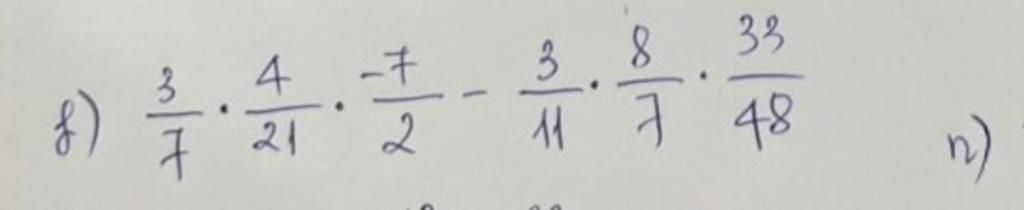 f) 3/7 · 4/21 · -7/2 - 3/11 · 8/7 · 33/48
n)